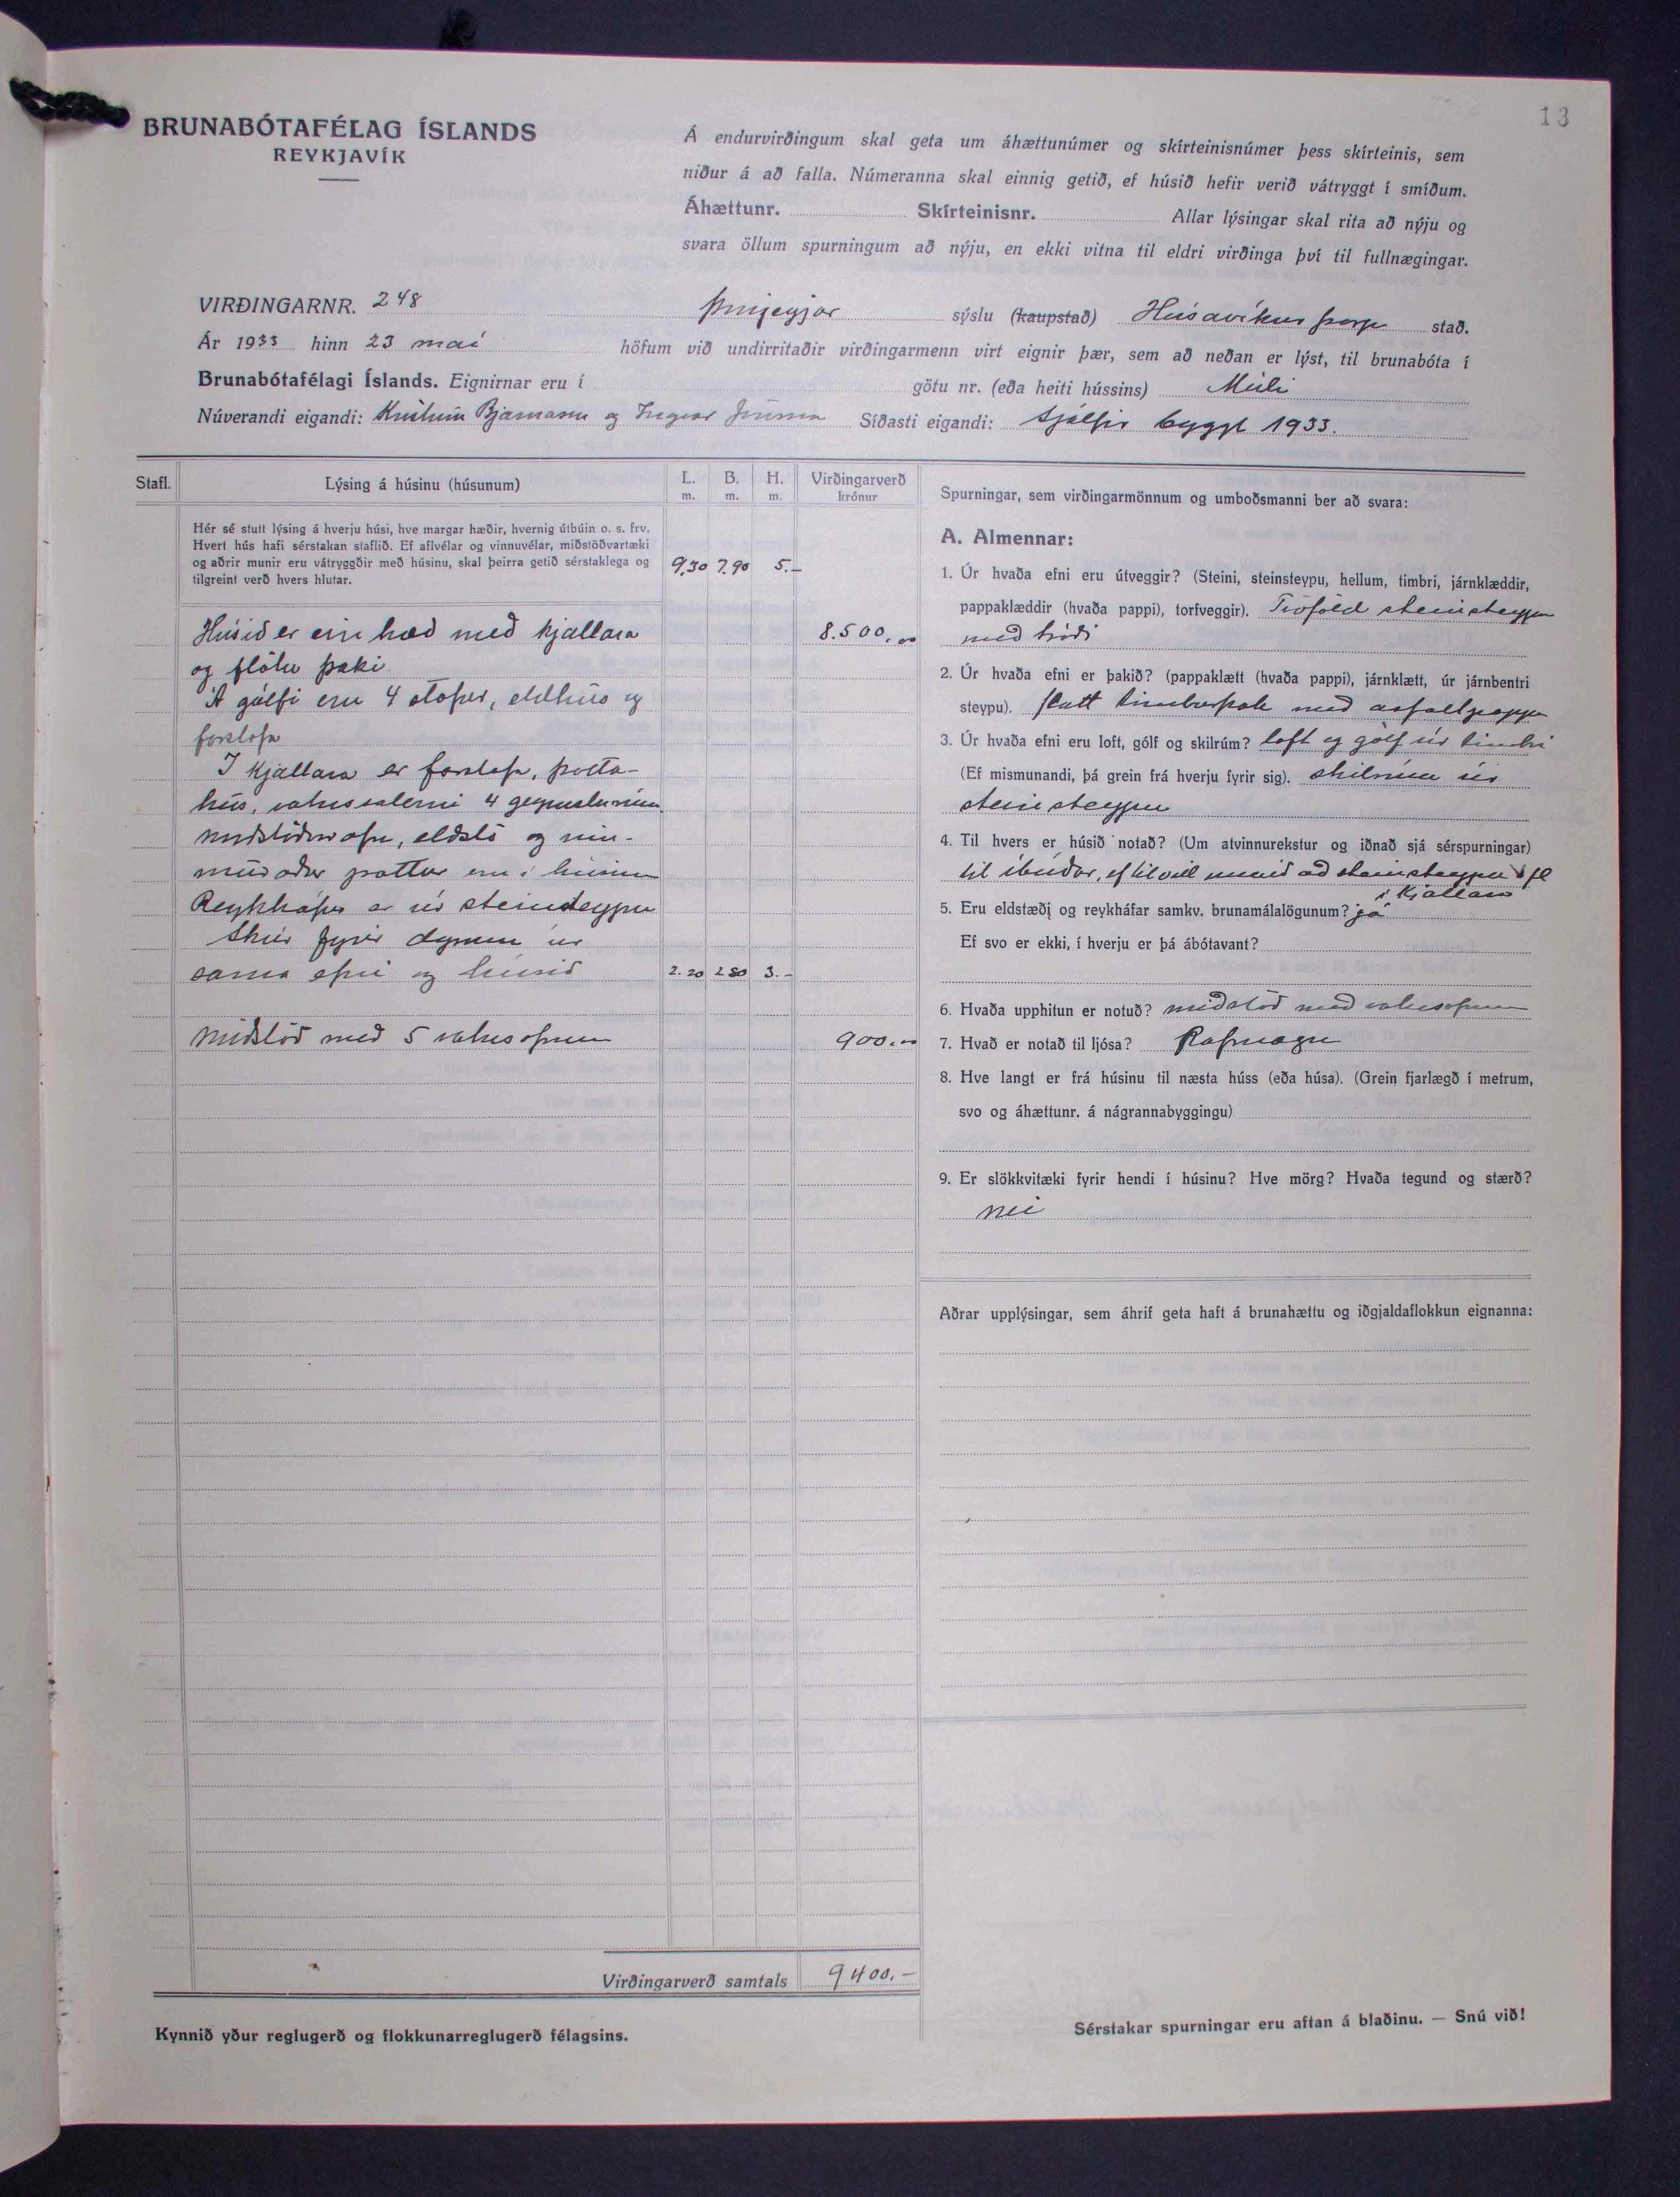 13
BRUNABÓTAFÉLAG ÍSLANDS
REYKJAVÍK
Á endurvirðingum skal geta um áhættunúmer og skírteinisnúmer þess skírteinis, sem
niður á að falla. Númeranna skal einnig getið, ef húsið hefir verið vátryggt í smíðum.
Áhættunr. Skírteinisnr. Allar lýsingar skal rita að nýju og
svara öllum spurningum að nýju, en ekki vitna til eldri virðinga því til fullnægingar.
VIRÐINGARNR. 248 Þingeyjar sýslu (kaupstað) Húsavíkurþorp stað.
Ár 1933 hinn 23 maí höfum við undirritaðir virðingarmenn virt eignir þær, sem að neðan er lýst, til brunabóta í
Brunabótafélagi Íslands. Eignirnar eru í götu nr. (eða heiti hússins) Múli
Núverandi eigandi: Bjarnason og Ingvar Síðasti eigandi: Sjálfir byggt 1933.
Stafl. Lýsing á húsinu (húsunum) L. m. B. m. H. m. Virðingarverð krónur
Hér sé stutt lýsing á hverju húsi, hve margar hæðir, hvernig útbúin o. s. frv.
Hvert hús hafi sérstakan staflið. Ef aflvélar og vinnuvélar, miðstöðvartæki
og aðrir munir eru vátryggðir með húsinu, skal þeirra getið sérstaklega og
tilgreint verð hvers hlutar.
9,30 7.90 5.-
Húsið er ein hæð með kjallara 8.500.00
og flötu þaki.
Á gólfi eru 4 stofur, eldhús og
forstofa
Í kjallara er forstofa, þvotta-
hús, vatnssalerni 4 geymslurúm
miðstöðvarofn, eldstó og inn-
múraður pottur eru í húsinu
Reykháfur er úr steinsteypu
Skúr fyrir dyrum úr
sama efni og húsið 2.20 2.80 3.-
Miðstöð með 5 vatnsofnum 900.00
Virðingarverð samtals 9400.-
Kynnið yður reglugerð og flokkunarreglugerð félagsins.
Spurningar, sem virðingarmönnum og umboðsmanni ber að svara:
A. Almennar:
1. Úr hvaða efni eru útveggir? (Steini, steinsteypu, hellum, timbri, járnklæddir,
pappaklæddir (hvaða pappi), torfveggir). Tvöföld steinsteypa
með tróði
2. Úr hvaða efni er þakið? (pappaklætt (hvaða pappi), járnklætt, úr járnbentri
steypu). flatt timburþak með asfaltpappa
3. Úr hvaða efni eru loft, gólf og skilrúm? loft og gólf úr timbri
(Ef mismunandi, þá grein frá hverju fyrir sig). skilrúm úr
steinsteypu
4. Til hvers er húsið notað? (Um atvinnurekstur og iðnað sjá sérspurningar)
til íbúðar, ef til vill unnið að steinsteypu o fl
í kjallara
5. Eru eldstæði og reykháfar samkv. brunamálalögunum? já
Ef svo er ekki, í hverju er þá ábótavant?
6. Hvaða upphitun er notuð? miðstöð með vatnsofnum
7. Hvað er notað til ljósa? Rafmagn
8. Hve langt er frá húsinu til næsta húss (eða húsa). (Grein fjarlægð í metrum,
svo og áhættunr. á nágrannabyggingu)
9. Er slökkvitæki fyrir hendi í húsinu? Hve mörg? Hvaða tegund og stærð?
nei
Aðrar upplýsingar, sem áhrif geta haft á brunahættu og iðgjaldaflokkun eignanna:
Sérstakar spurningar eru aftan á blaðinu. — Snú við!